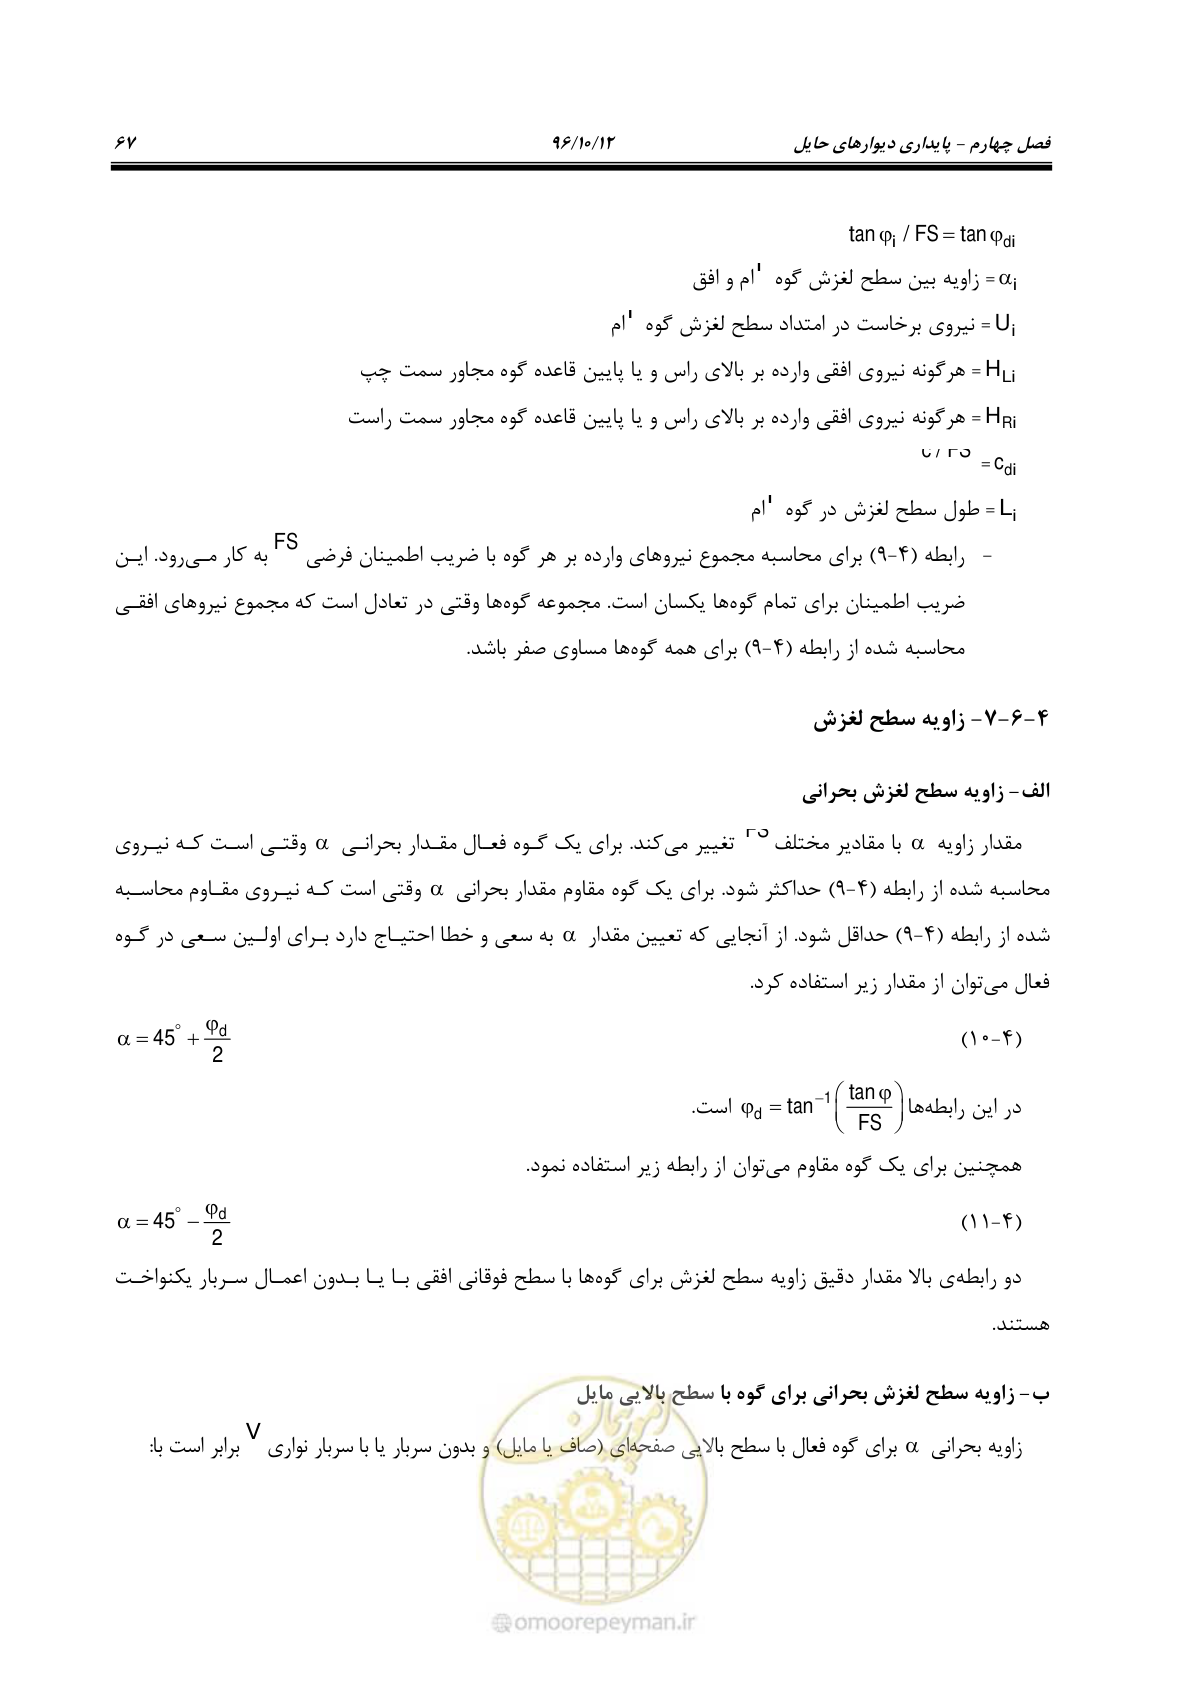 فصل چهارم – پایداری دیوارهای حایل ۹۶/۱۰/۱۲ ۶۷
tan φi / FS = tan φdi
αi = زاویه بین سطح لغزش گوه ام و افق
Ui = نیروی برخاست در امتداد سطح لغزش گوه ام
HLi = هرگونه نیروی افقی وارده بر بالای راس و یا پایین قاعده گوه مجاور سمت چپ
HRi = هرگونه نیروی افقی وارده بر بالای راس و یا پایین قاعده گوه مجاور سمت راست
cdi = c / FS
Li = طول سطح لغزش در گوه ام
– رابطه (۴-۹) برای محاسبه مجموع نیروهای وارده بر هر گوه با ضریب اطمینان فرضی FS به کار می‌رود. این
ضریب اطمینان برای تمام گوه‌ها یکسان است. مجموعه گوه‌ها وقتی در تعادل است که مجموع نیروهای افقی
محاسبه شده از رابطه (۴-۹) برای همه گوه‌ها مساوی صفر باشد.
۴-۶-۷- زاویه سطح لغزش
الف- زاویه سطح لغزش بحرانی
مقدار زاویه α با مقادیر مختلف FS تغییر می‌کند. برای یک گوه فعال مقدار بحرانی α وقتی است که نیروی
محاسبه شده از رابطه (۴-۹) حداکثر شود. برای یک گوه مقاوم مقدار بحرانی α وقتی است که نیروی مقاوم محاسبه
شده از رابطه (۴-۹) حداقل شود. از آنجایی که تعیین مقدار α به سعی و خطا احتیاج دارد برای اولین سعی در گوه
فعال می‌توان از مقدار زیر استفاده کرد.
(۴-۱۰) α = 45° + φd/2
در این رابطه‌ها φd = tan⁻¹(tan φ / FS) است.
همچنین برای یک گوه مقاوم می‌توان از رابطه زیر استفاده نمود.
(۴-۱۱) α = 45° − φd/2
دو رابطه‌ی بالا مقدار دقیق زاویه سطح لغزش برای گوه‌ها با سطح فوقانی افقی با یا بدون اعمال سربار یکنواخت
هستند.
ب- زاویه سطح لغزش بحرانی برای گوه با سطح بالایی مایل
زاویه بحرانی α برای گوه فعال با سطح بالایی صفحه‌ای (صاف یا مایل) و بدون سربار یا با سربار نواری V برابر است با:
امور پیمان
@omoorepeyman.ir